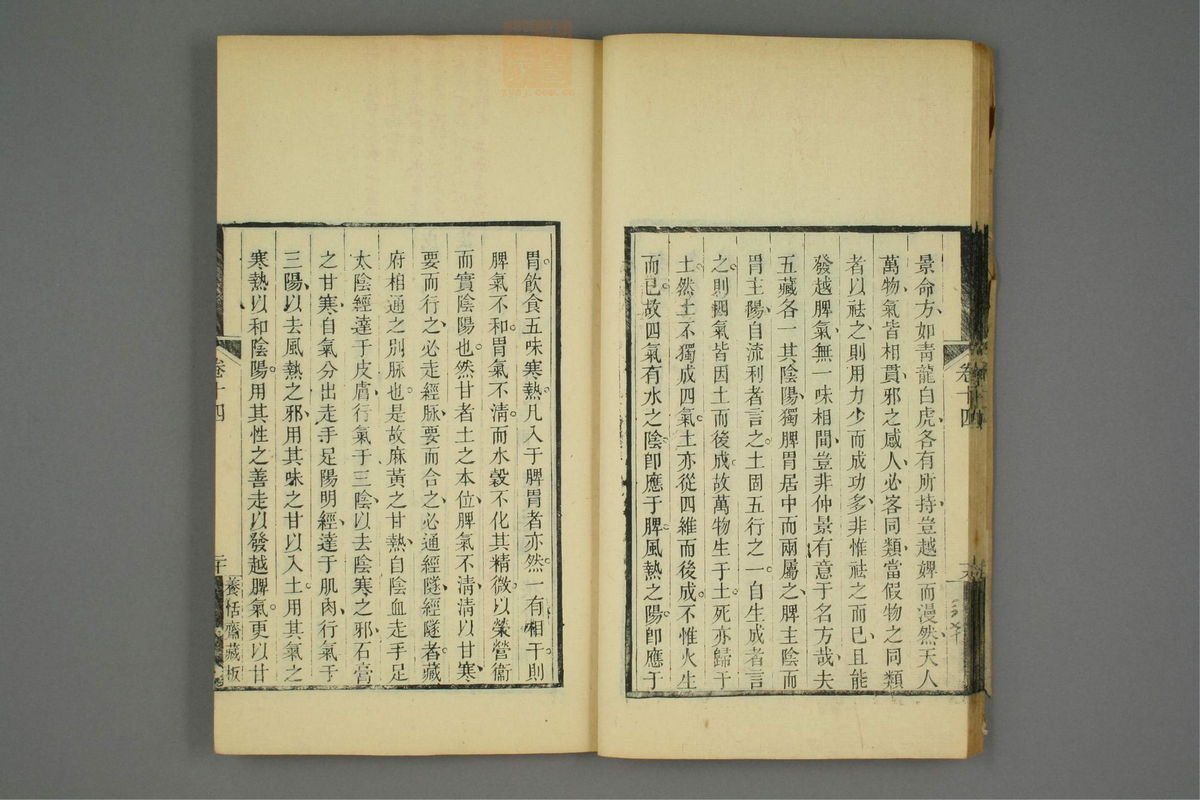 景命方如靑龍白虎各有所持豈越婢而漫然天人
萬物氣皆相貫邪之感人必客同類當假物之同類
者以祛之則用力少而成功多非惟祛之而已且能
發越脾氣無一味相間豈非仲景有意于名方哉夫
五藏各一其陰陽獨脾胃居中而兩屬之脾主陰而
胃主陽自流利者言之土固五行之一自生成者言
之則四氣皆因土而後成故萬物生于土死亦歸于
土然土不獨成四氣土亦從四維而後成不惟火生
而已故四氣有水之陰卽應于脾風熱之陽卽應于
卷十四
胃飮食五味寒熱凡入于脾胃者亦然一有相干則
脾氣不和胃氣不淸而水穀不化其精微以榮營衞
而實陰陽也然甘者土之本位脾氣不淸淸以甘寒
要而行之必走經脉要而合之必通經隧經隧者藏
府相通之別脉也是故麻黃之甘熱自陰血走手足
太陰經達于皮膚行氣于三陰以去陰寒之邪石膏
之甘寒自氣分出走手足陽明經達于肌肉行氣于
三陽以去風熱之邪用其味之甘以入土用其氣之
寒熱以和陰陽用其性之善走以發越脾氣更以甘
卷十四
養恬齋藏板